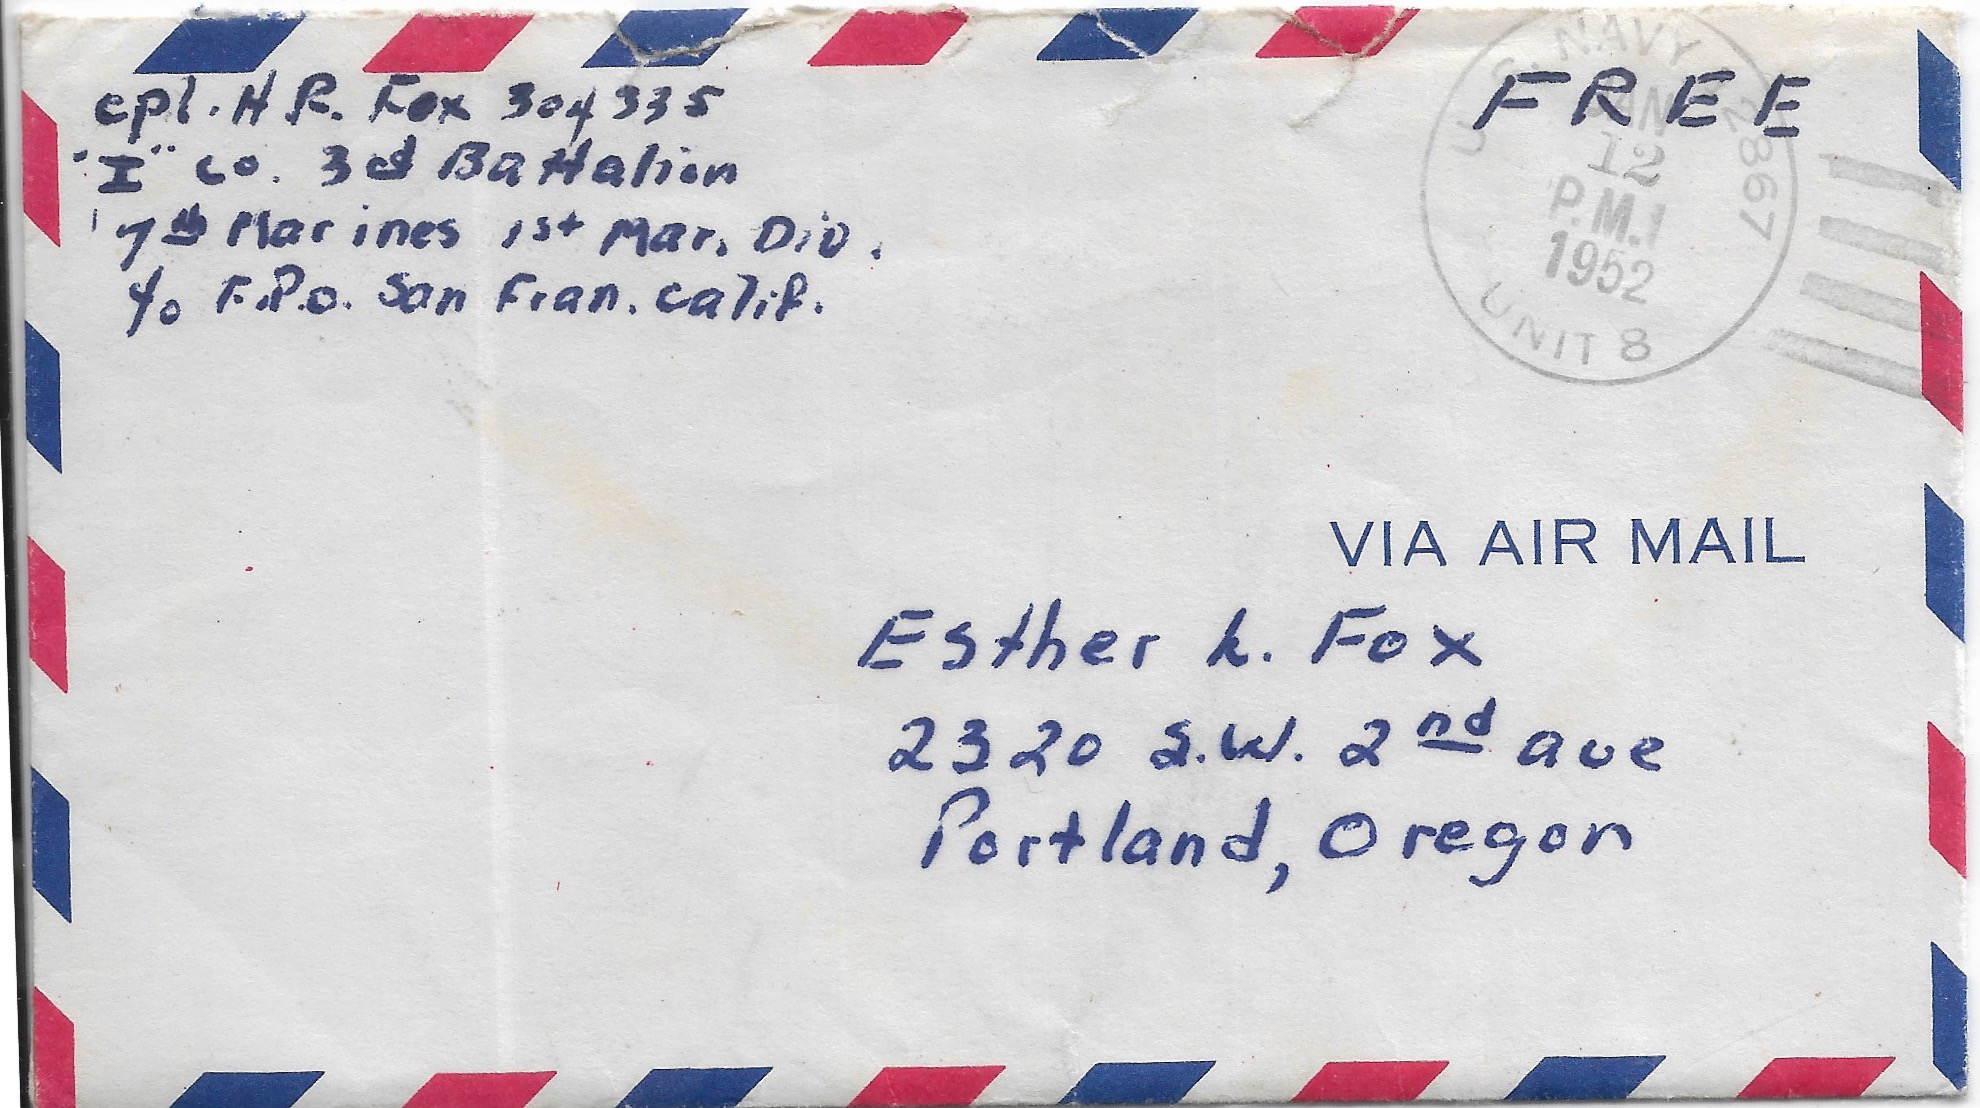 cpl. H R. Fox 304335
"I" co. 3rd Battalion
7th Marines 1st Mar. Div.
c/o F.P.O. San Fran. Calif.
FREE
U.S. NAVY 12867
JAN
12
P.M.
1952
UNIT 8
VIA AIR MAIL
Esther L. Fox
2320 S.W. 2nd ave
Portland, Oregon